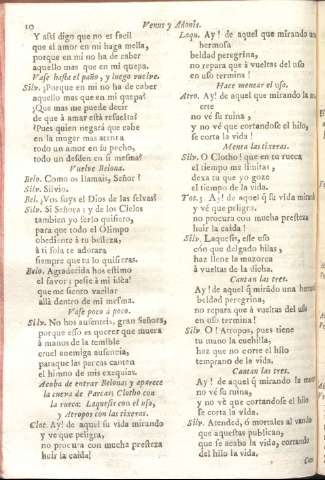 10
Venus y Adonis.
Y assi digo que no es facil
que el amor en mi haga mella,
porque en mi no ha de caber
aquello mas que en mi quepa.
Vase hasta el paño, y luego vuelve.
Silv. ¡Porque en mi no ha de caber
aquello mas que en mi quepa!
¡Que mas me puede decir
de que à amar está resuelta!
¿Pues quien negará que cabe
en la muger mas atenta
todo un amor en su pecho,
todo un desden en sí mesma?
Vuelve Belona.
Belo. Como os llamais, Señor?
Silv. Silvio.
Bel. ¿Vos suys el Dios de las selvas?
Silv. Si Señora; y de los Cielos
tambien yo serlo quisiero,
para que todo el Olimpo
obediente à tu belleza,
à ti sola te adorara
siempre que tu lo quisieras.
Belo. Agradecida hos estimo
el favor: pesie à mi idea!
que me siento vacilar
allá dentro de mi mesma.
Vase poco à poco.
Silv. No hos ausenteis, gran Señora,
porque esso es querer que muera
à manos de la temible
cruel enemiga ausencia,
paraque las parcas canten
el himno de mis exequias.
Acaba de entrar Belona, y aparece
la cueva de Parcas; Clotho con
la rueca: Laquesis con el uso,
y Atropos con las tixeras.
Clot. Ay! de aquel que su vida mirando
y ve que peligra,
no procura con mucha presteza
huir la caida!
Laqu. Ay! de aquel que mirando una
hermosa
beldad peregrina,
no repara que à vueltas del uso
en uso termina!
Hace menear el uso.
Atro. Ay! de aquel que mirando la muerte
no vé su ruina,
y no vé que cortandose el hilo,
se corta la vida!
Menea las tixeras.
Silv. O Clotho! que en tu rueca
el tiempo me limitas,
dexa ra que yo goze
el tiempo de la vida.
Tot. 3. Ay! de aquel q̃ su vida mirando
y vé que peligra,
no procura con mucha presteza
huir la caida!
Silv. Laquesis, esse uso
con que delgado hilas,
haz llene la mazorca
à vueltas de la dicha.
Cantan las tres.
Ay! de aquel q̃ mirando una hermosa
beldad peregrina,
no repara que à vueltas del uso
en uso termina!
Silv. O! Atropos, pues tiene
tu mano la cuchilla,
haz que no corte el hilo
temprano de la vida.
Cantan las tres.
Ay! de aquel q̃ mirando la muerte
no vé su ruina,
y no vé que cortandose el hilo
se corta la vida.
Silv. Atended, ò mortales al vando
que aquestas publican,
que se acaba lo vida, cortando
del hilo la vida.